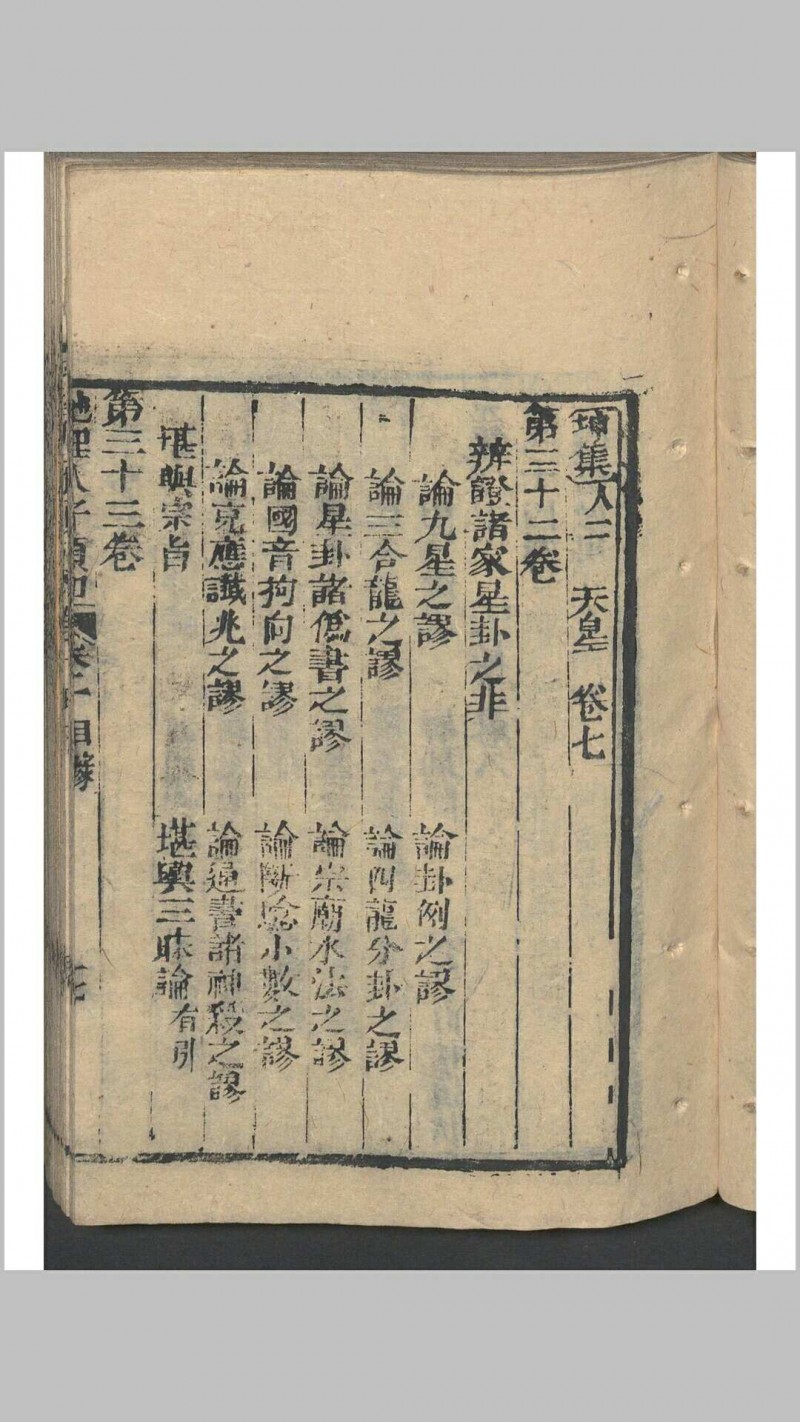 坤集 人二 天皇 卷七
第三十二卷
辨證諸家星卦之非
論九星之謬 論卦例之謬
論三合龍之謬 論四龍分卦之謬
論星卦諸僞書之謬 論宗廟水法之謬
論國音拘向之謬 論斷驗小數之謬
論克應讖兆之謬 論通書諸神殺之謬
堪輿宗旨 堪輿三昧論有引
第三十三卷
地理人子須知 目錄